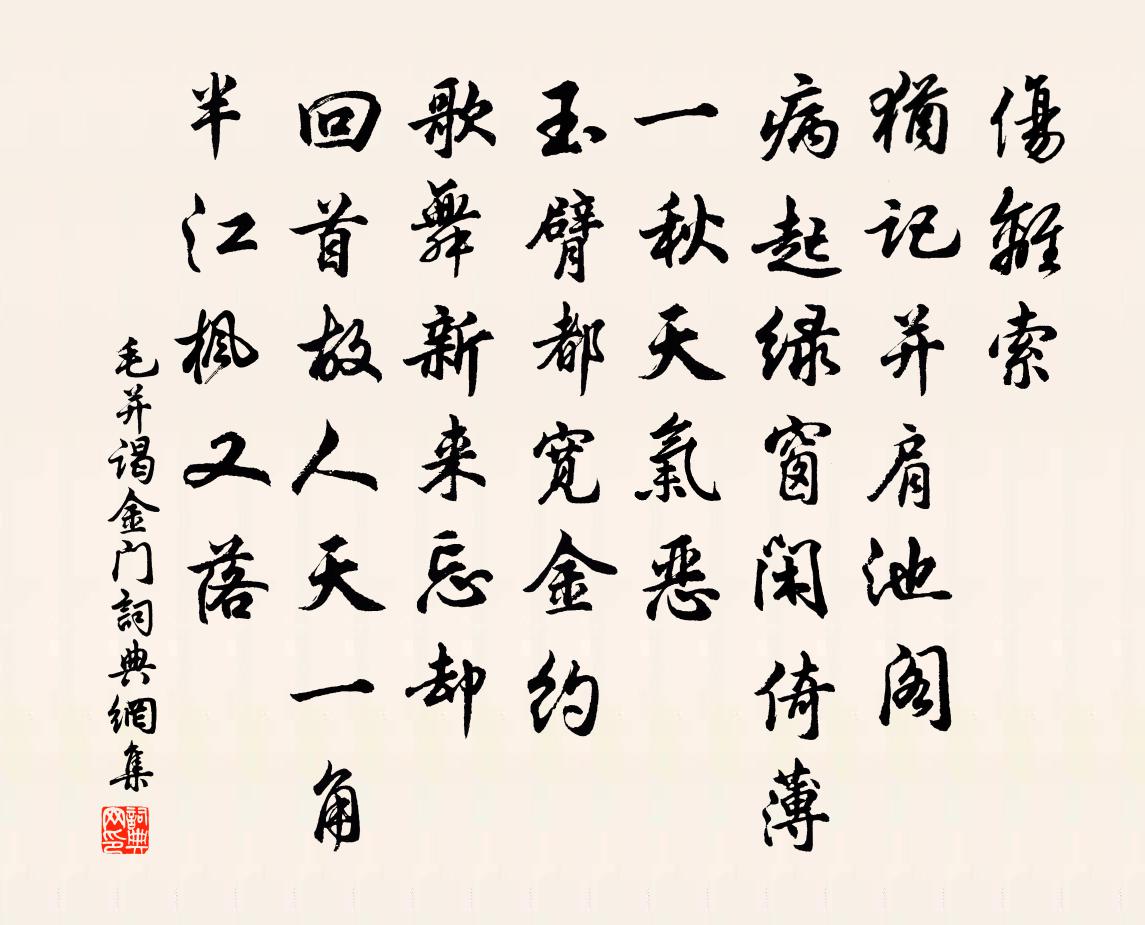 傷離索
猶記并肩池閣
病起緑窗闲倚薄
一秋天氣恶
玉臂都宽金约
歌舞新来忘却
回首故人天一角
半江楓又落
毛并谒金门詞典網集
詞典网印